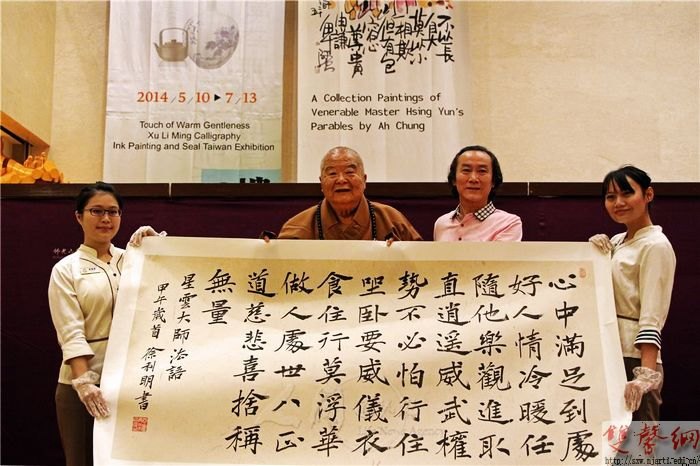 2014/5/10 ▶ 7/13
Touch of Warm Gentleness
Xu Li Ming Calligraphy
Ink Painting and Seal Taiwan Exhibition
A Collection Paintings of
Venerable Master Hsing Yun's
Parables by Ah Chung
心中滿足到處
好人情冷暖任
隨他樂觀進取
直逍遥威武權
勢不必怕行住
坐卧要威儀衣
食住行莫浮華
做人處世八正
道慈悲喜捨稱
無量
星雲大師法語
甲午歲首 徐利明書
雙馨網
http://sxw.njarti.edu.cn/